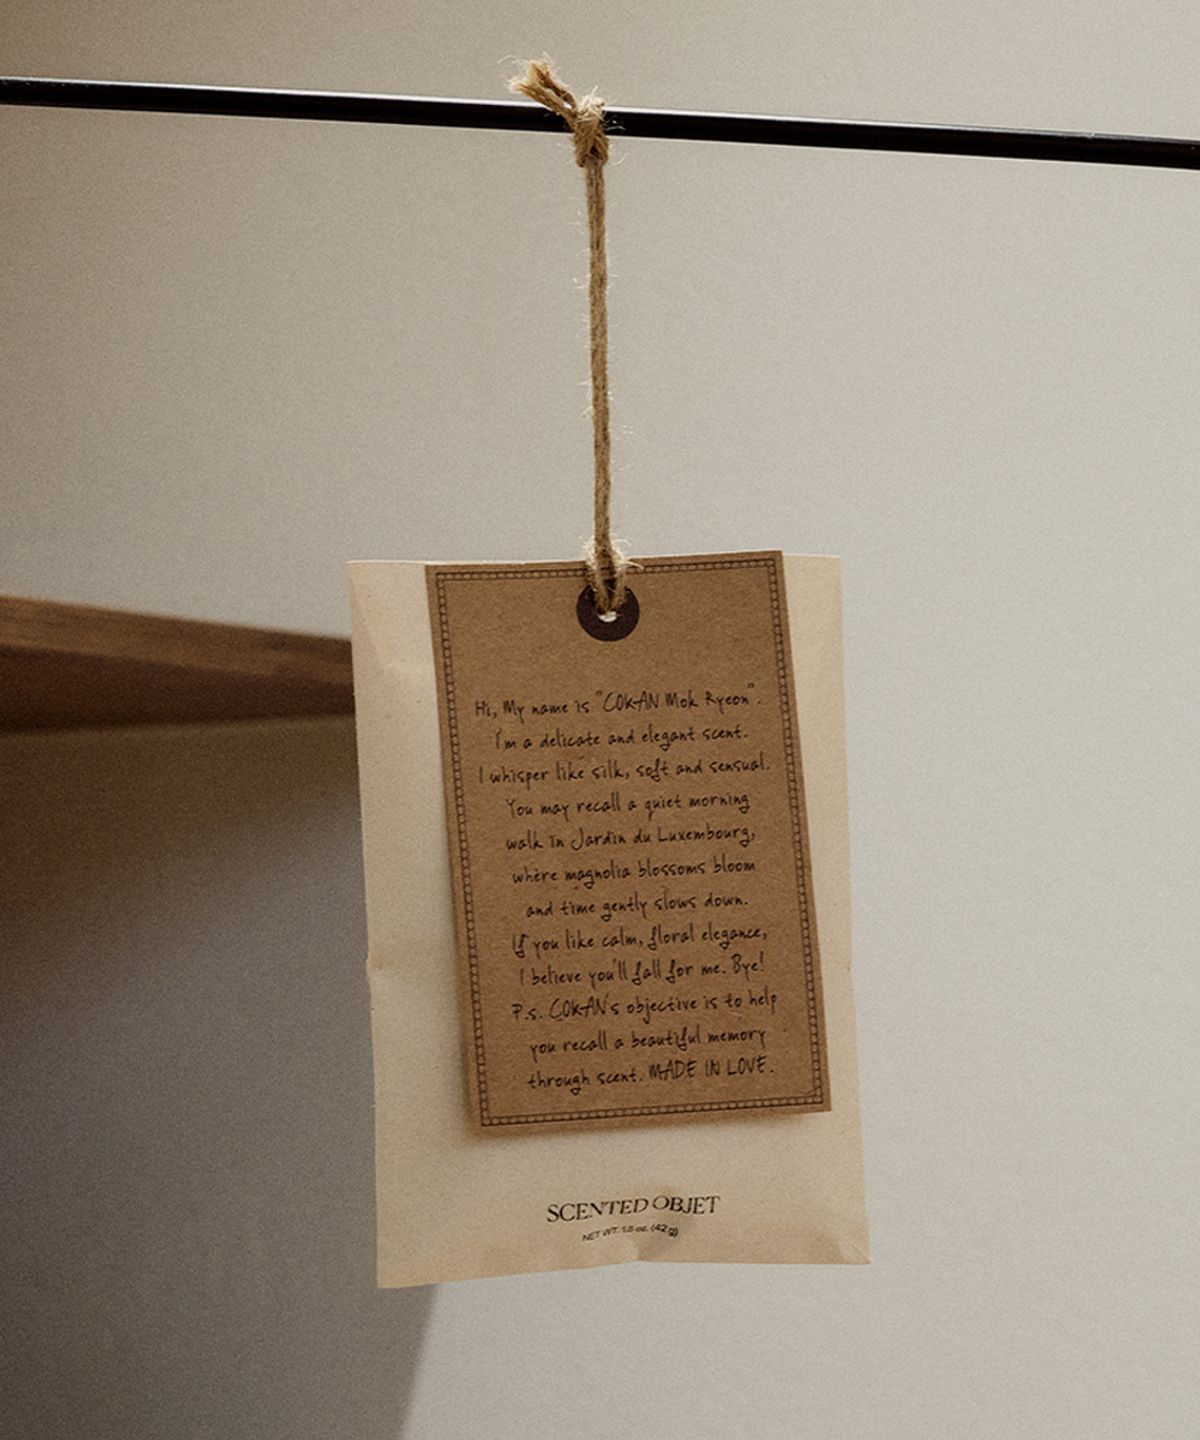 Hi, My name is "COKAN Mok Ryeon".
I'm a delicate and elegant scent.
I whisper like silk, soft and sensual.
You may recall a quiet morning
walk in Jardin du Luxembourg,
where magnolia blossoms bloom
and time gently slows down.
If you like calm, floral elegance,
I believe you'll fall for me. Bye!
P.s. COKAN's objective is to help
you recall a beautiful memory
through scent. MADE IN LOVE.
SCENTED OBJET
NET WT. 1.5 oz. (42 g)